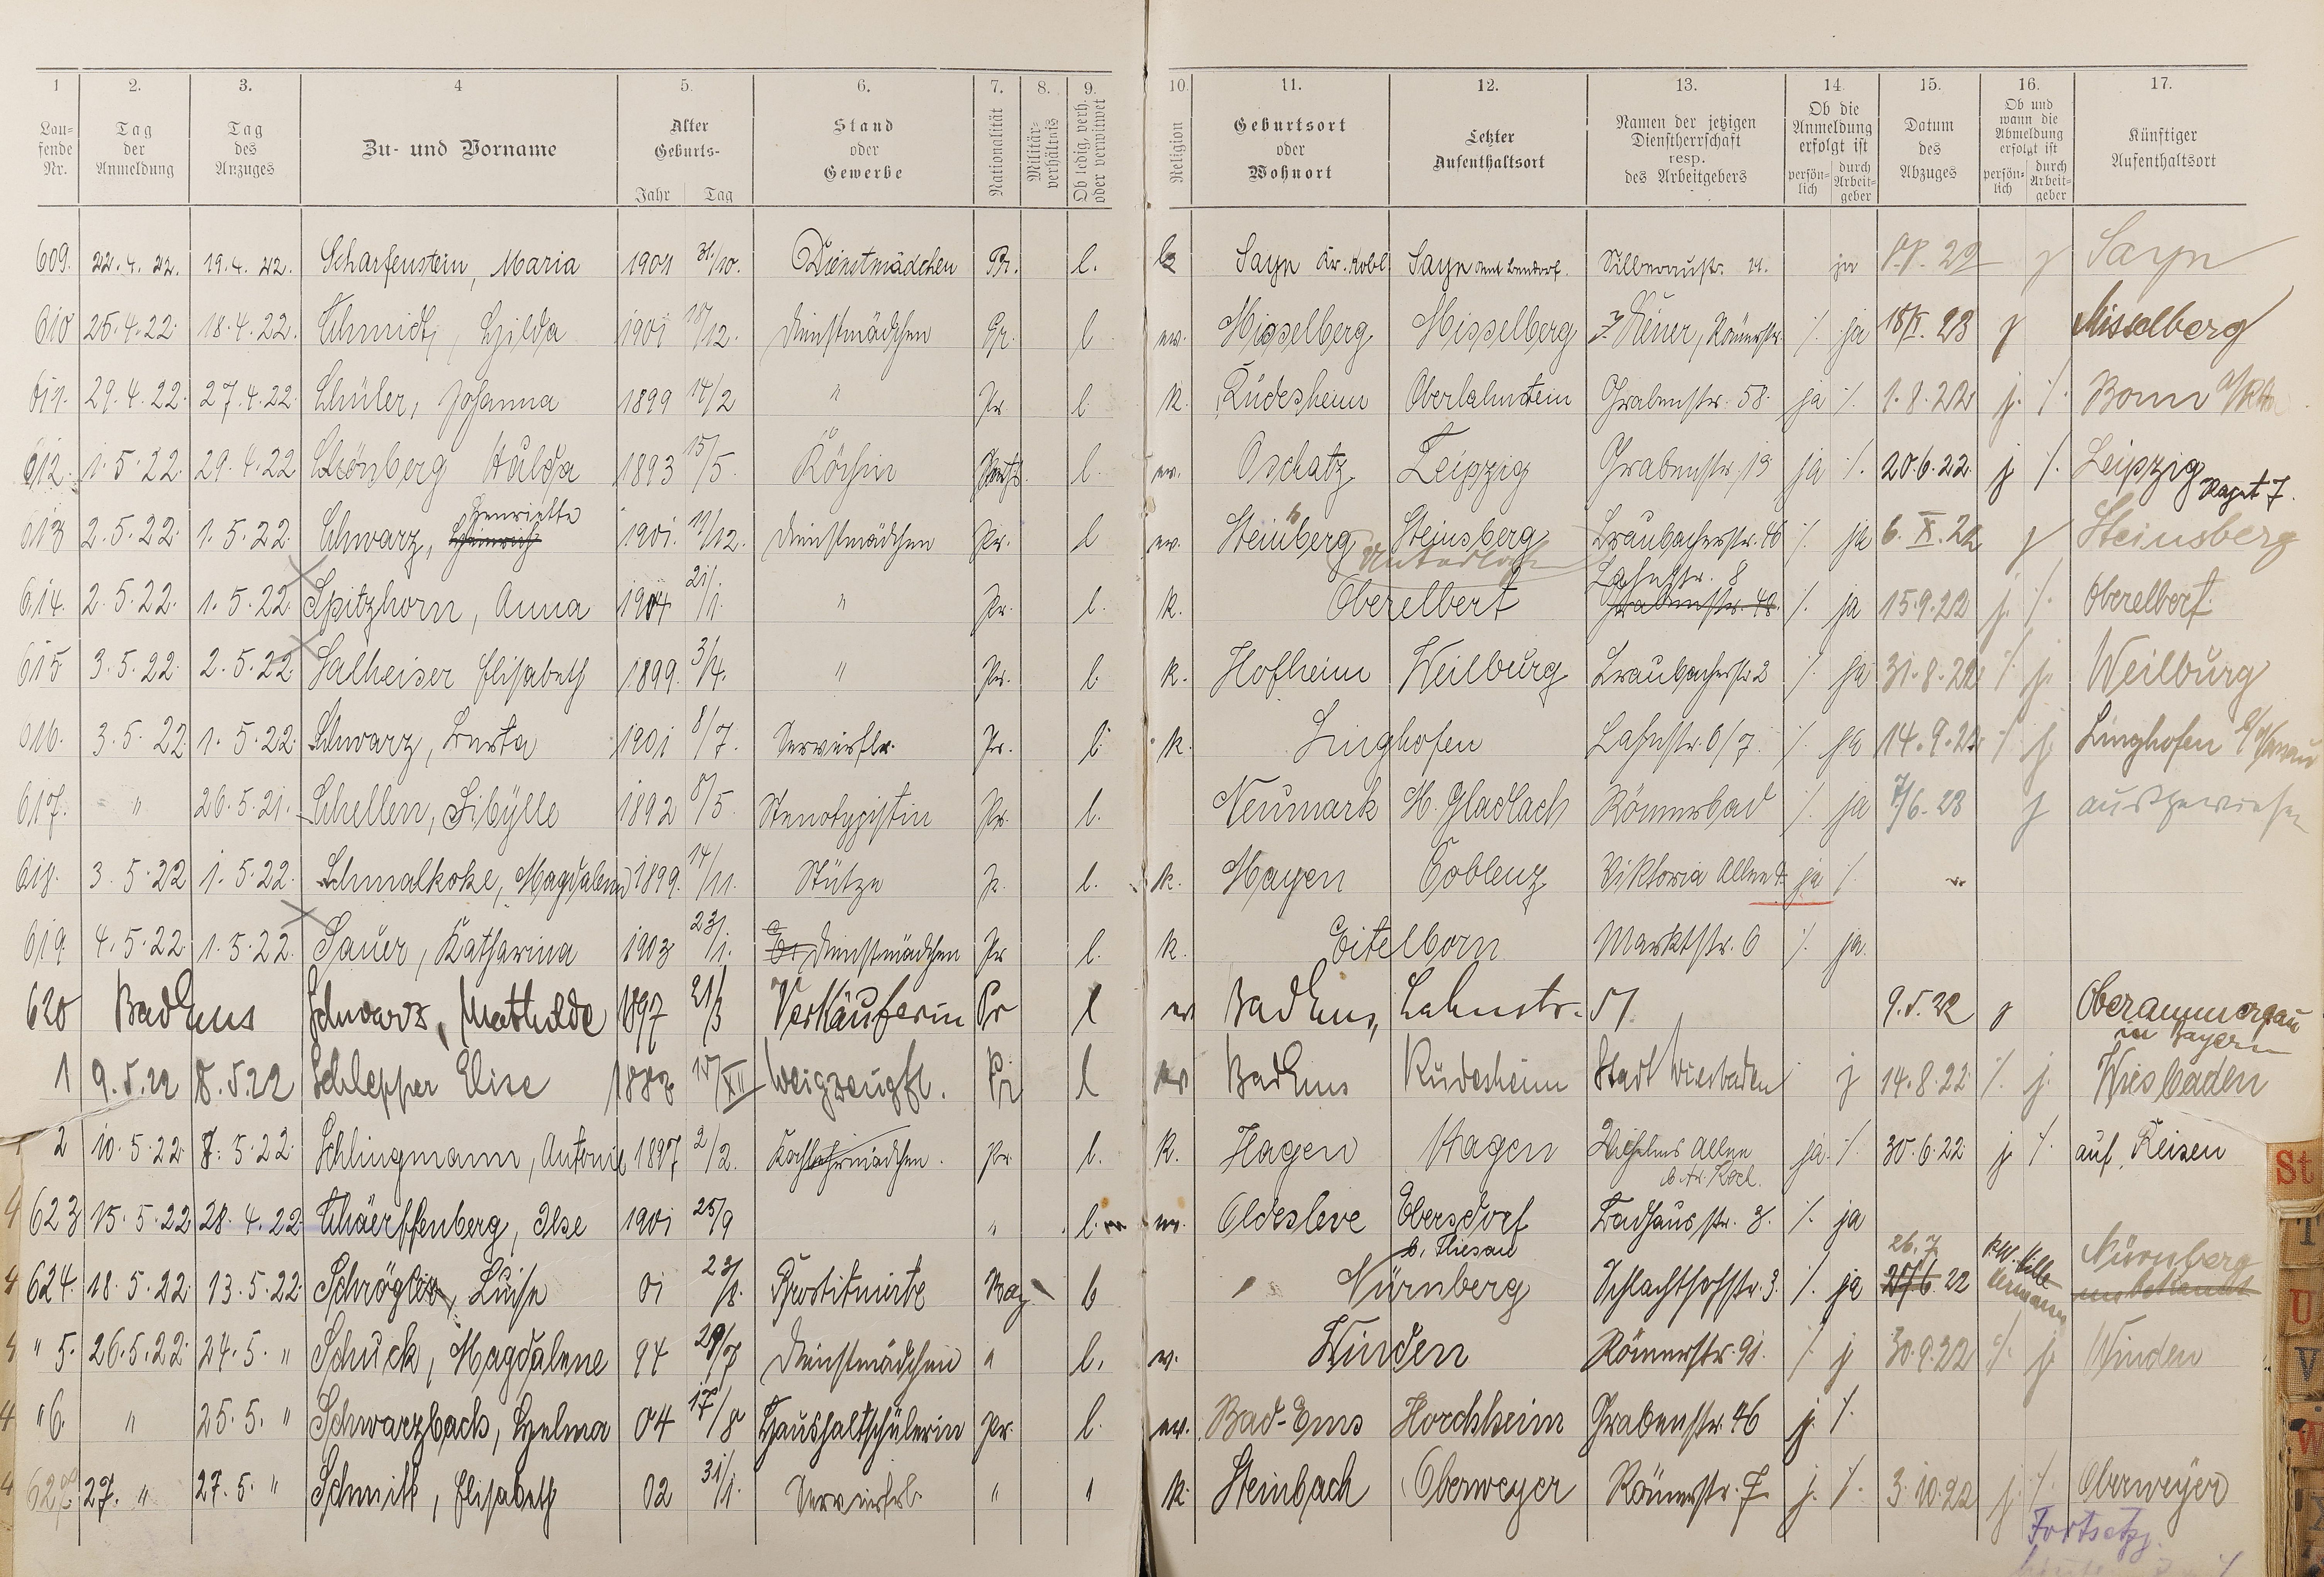 1 2. 3. 4 5. 6. 7. 8. 9. 10. 11. 12. 13. 14. 15. 16. 17.
Lau-
fende
Nr.
Tag
der
Anmeldung
Tag
des
Anzuges
Zu- und Vorname
Alter
Geburts-
Jahr Tag
Stand
oder
Gewerbe
Nationalität
Militär-
verhältnis
Ob ledig, verh.
oder verwitwet
Religion
Geburtsort
oder
Wohnort
Letzter
Aufenthaltsort
Namen der jetzigen
Dienstherrschaft
resp.
des Arbeitgebers
Ob die
Anmeldung
erfolgt ist
persön-
lich
durch
Arbeit-
geber
Datum
des
Abzuges
Ob und
wann die
Abmeldung
erfolgt ist
persön-
lich
durch
Arbeit-
geber
Künftiger
Aufenthaltsort
609. 22.4.22. 19.4.22. Scharfenstein, Maria 1901 31/10. Dienstmädchen Pr. l. k Sayn Kr. Kobl Sayn Amt Bendorf. Silberaustr. 21. ja Sayn
610 25.4.22. 18.4.22. Schmidt, Hilda 1901 Dienstmädchen Pr. l ev. Misselberg Misselberg Römerstr. ·/. ja 18/X. 23 j Misselberg
611. 29.4.22. 27.4.22 Schüler, Johanna 1899 14/2 " Pr. l. k. Rüdesheim Oberlahnstein Grabenstr. 58. ja ·/. 1.8.22 j. ·/. Bonn a/Rh
612. 1.5.22. 29.4.22 Schönberg Hulda 1893 15/5. Köchin l. ev. Oschatz Leipzig Grabenstr. 19 ja ·/. 20.6.22. j ·/. Leipzig
Henriette
613 2.5.22. 1.5.22. Schwarz, Heinrich 1901. 11/12. Dienstmädchen Pr. l ev. Steinsberg Steinsberg Braubacherstr. 46 ·/. ja 6.X.22 j Steinsberg
Lahnstr. 8
614. 2.5.22. 1.5.22. Spitzhorn, Anna 1904 21/1. " Pr. l. k. Oberelbert Grabenstr. 48. ·/. ja 15.9.22 j. ·/. Oberelbert
615 3.5.22. 2.5.22 Salheiser Elisabeth 1899. 3/4. " Pr. l. k. Hofheim Weilburg Braubacherstr. 2 ·/. ja 31.8.22 ·/. j. Weilburg
616. 3.5.22 1.5.22. Schwarz, Berta 1901 8/7. Servierfrl. Pr. l. k. Singhofen Lahnstr. 6/7. ·/. ja 14.9.22 ·/. j. Singhofen
617. " 26.5.21. Schellen, Sibylle 1892 8/5. Stenotypistin Pr. l. Neumark M. Gladbach Römerbad ·/. ja 7/6.23 j ausgewiesen
618. 3.5.22 1.5.22. Schmalkoke, Magdalena 1899. 14/11. Stütze Pr. l. k. Mayen Coblenz Viktoria Allee ja ·/.
619 4.5.22. 1.5.22. Sauer, Katharina 1903 23/1. Dienstmädchen Pr l. k. Eitelborn Marktstr. 6 ·/. ja.
620 Bad Ems Schwarz, Mathilde 1897 21/3 Verkäuferin Pr l ev Bad Ems, Lahnstr. 51. 9.5.22 j Oberammergau
in Bayern
1 9.5.22 8.5.22 Schlepper Elise Weißzeugfr. Pr l ev Bad Ems Rüdesheim Stadt Wiesbaden j 14.8.22. ·/. j. Wiesbaden
2 10.5.22 8.5.22. Schlingmann, Antonie 1897 2/2. Kochlehrmädchen. Pr. l. k. Hagen Hagen Wilhelms Allee ja ·/. 30.6.22 j. ·/. auf Reisen
4 623 15.5.22 28.4.22 Schäerffenberg, Ilse 1901 25/9 " l. ev. Oldesleve Ebersdorf Badhausstr. 3. ·/. ja
26.7
4 624. 18.5.22. 13.5.22. Luise 01 23/8. Prostituirte Bay. b Nürnberg Schlachthofstr. 3. ·/. ja 22 Nürnberg
unbekannt
4 " 5. 26.5.22. 24.5. " Schuck, Magdalene 94 29/7 Dienstmädchen " l. ev. Winden Römerstr. 91. ·/. j 30.9.22 ·/. j. Winden
4 " 6. " 25.5. " Schwarzbach, Helma 04 17/8 Haushaltschülerin Pr. l. ev. Bad-Ems Horchheim Grabenstr. 46 j. ·/.
4 627 27. " 27.5. " Schmitt, Elisabeth 02 31/1. Servierfrl. " " k. Steinbach Oberweyer Römerstr. 7. j. ·/. 3.10.22 j. ·/. Oberweyer
Fortsetzg.
St
T
U
V
W